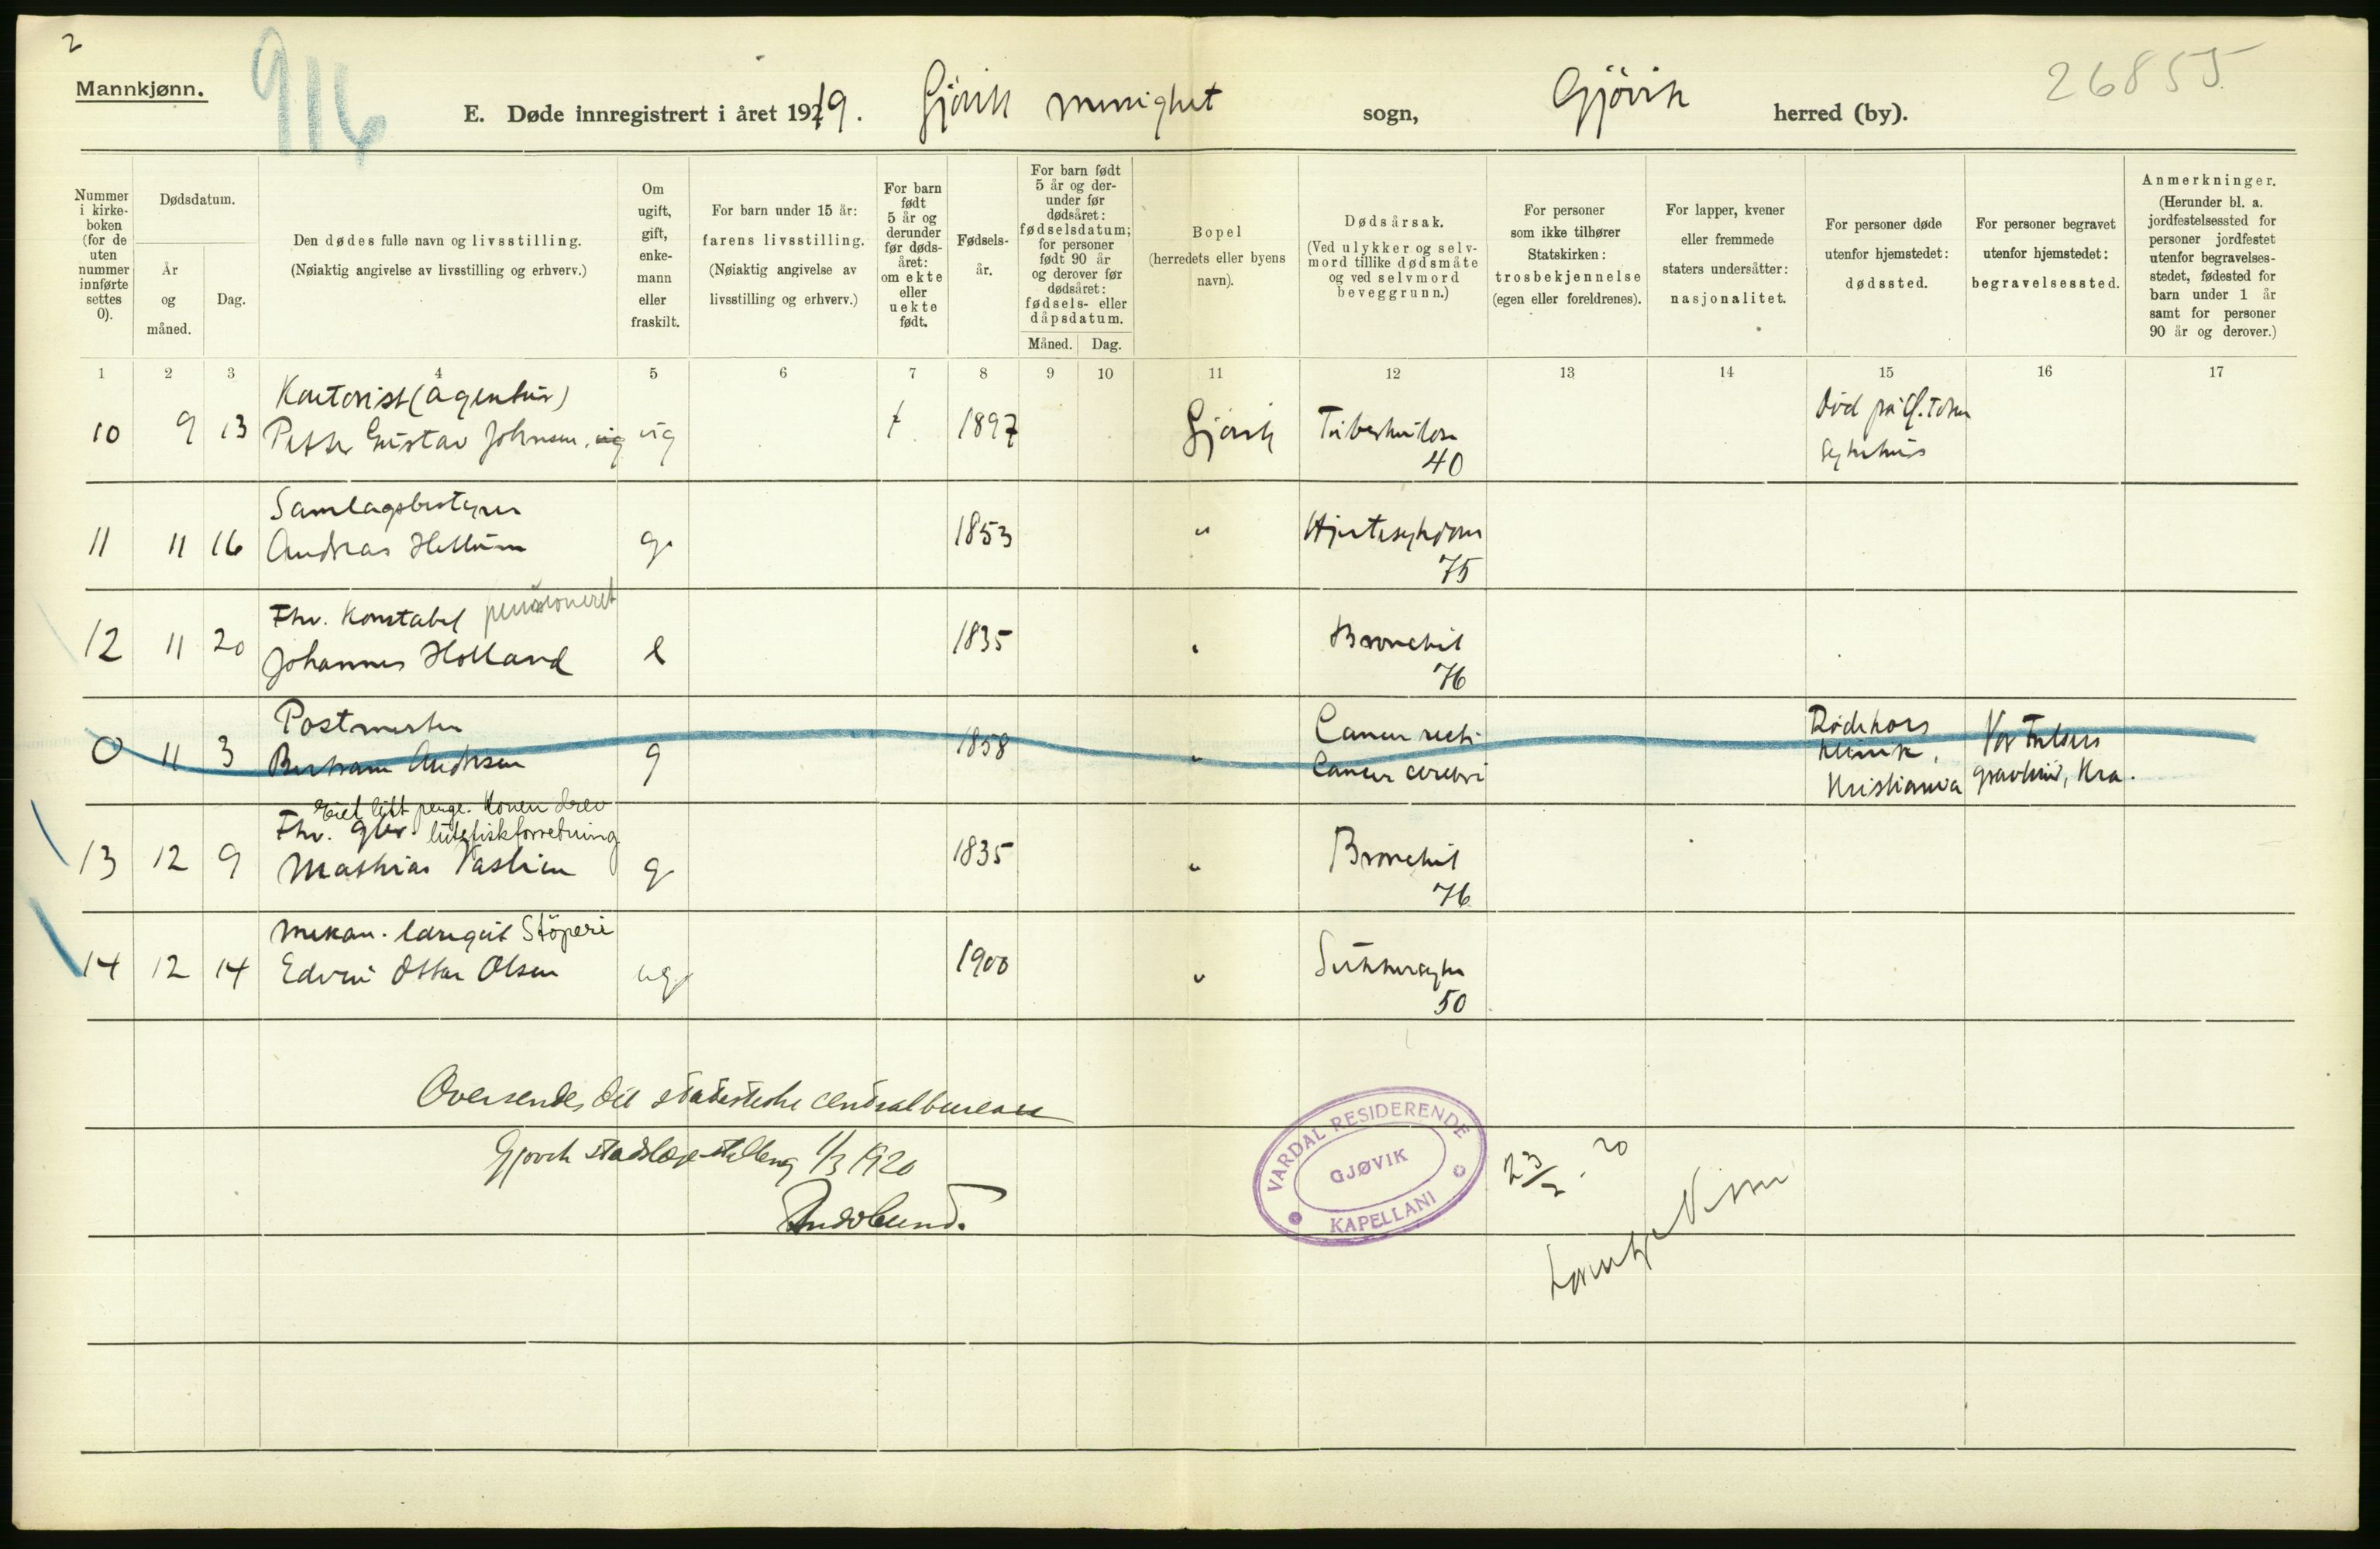 2
Mannkjønn.
916
E. Døde innregistrert i året 1919. Gjøvik menighet sogn, Gjøvik herred (by).
26855
Nummer i kirke-boken (for de uten nummer innførte settes 0).
Dødsdatum.
År og måned.
Dag.
Den dødes fulle navn og livsstilling.
(Nøiaktig angivelse av livsstilling og erhverv.)
Om ugift, gift, enke-mann eller fraskilt.
For barn under 15 år:
farens livsstilling.
(Nøiaktig angivelse av livsstilling og erhverv.)
For barn født 5 år og derunder før døds-året: om ekte eller uekte født.
Fødsels-år.
For barn født 5 år og der-under før dødsåret: fødselsdatum; for personer født 90 år og derover før dødsåret: fødsels- eller dåpsdatum.
Måned. Dag.
Bopel
(herredets eller byens navn).
Dødsårsak.
(Ved ulykker og selv-mord tillike dødsmåte og ved selvmord beveggrunn.)
For personer som ikke tilhører Statskirken: trosbekjennelse (egen eller foreldrenes).
For lapper, kvener eller fremmede staters undersåtter: nasjonalitet.
For personer døde utenfor hjemstedet: dødssted.
For personer begravet utenfor hjemstedet: begravelsessted.
Anmerkninger.
(Herunder bl. a. jordfestelsessted for personer jordfestet utenfor begravelses-stedet, fødested for barn under 1 år samt for personer 90 år og derover.)
1 2 3 4 5 6 7 8 9 10 11 12 13 14 15 16 17
Kontorist (agentur)
10 9 13 Petter Gustav Johnsen, ug ug 1897 Gjøvik Tuberkulose 40
Død på Gj. Toten sykehus
Samlagsbestyrer
11 11 16 Andreas Hellum g. 1853 " Hjertesykdom 75
Fhv. Konstabel pensioneret
12 11 20 Johannes Holland e 1835 " Bronchit 76
Postmester
0 11 3 Bertram Andresen g 1858 " Cancer recti Cancer cerebri
Rødekors klinik, Kristiania
Vor Frelsers gravlund, Kra.
Eiet litt penge. Konen drev
Fhv. lutefiskforretning
13 12 9 Mathias g. 1835 " Bronchit 76
Mekan. Støperi
14 12 14 Edvin Ottar Olsen ug. 1900 " Sukkersyke 50
Oversendes det statistiske centralbureau
Gjøvik stadslægestilling 1/3 1920
VARDAL RESIDERENDE KAPELLANI
GJØVIK
23/2. 20